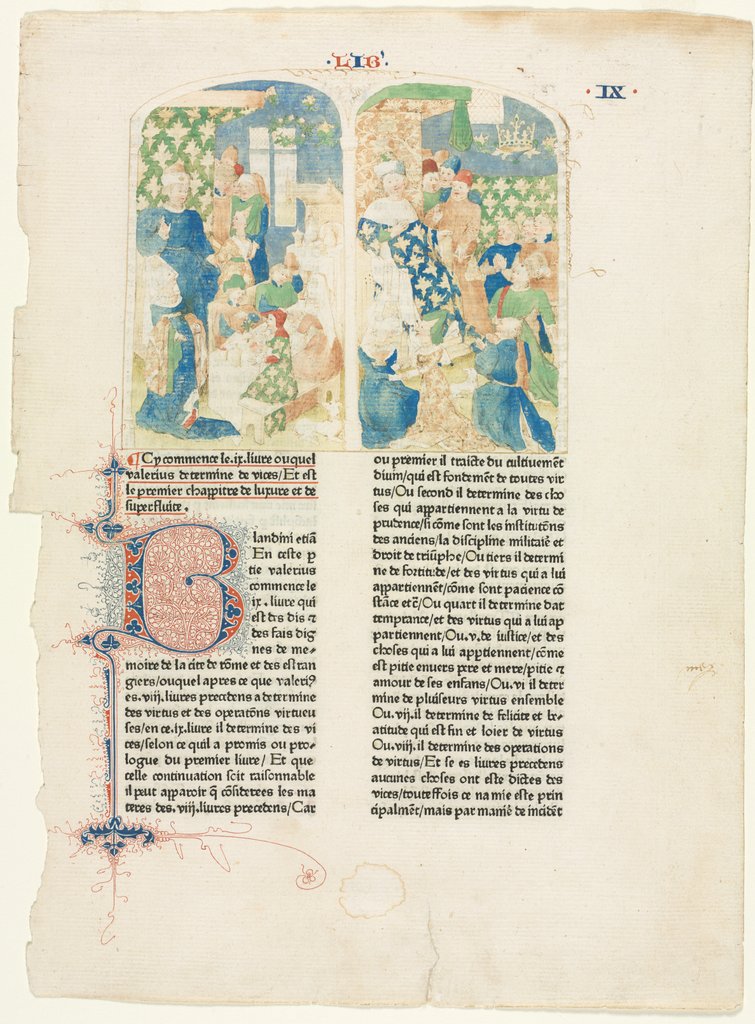 ·LIB'·
·IX·
¶ Cy commence le .ix. liure ou quel
valerius determine de vices/ Et est
le premier chappitre de luxure et de
superfluite .
Blandini etiã
En ceste p
tie valerius
commence le
ix . liure qui
est des dis ⁊
des fais dig
nes de me-
moire de la cite de rõme et des estran
giers/ouquel apres ce que valeriꝰ
es .viij. liures precedens a determine
des virtus et des operatõns virtueu
ses/en ce .ix. liure il determine des vi
ces/selon ce quil a promis ou pro-
logue du premier liure/ Et que
celle continuation soit raisonnable
il peut apparoir q̃ cõsiderees les ma
teres des .viij. liures precedens/Car
ou premier il traicte du cultiuemẽt
diuin/qui est fondemẽt de toutes vir
tus/Ou second il determine des cho
ses qui appartiennent a la virtu de
prudence/si cõme sont les institutõns
des anciens/la discipline militaire et
droit de triũphe/Ou tiers il determi
ne de fortitude/et des virtus qui a lui
appartiennẽt/cõme sont pacience cõ
stãce et c̃/Ou quart il determine dat
temprance/et des virtus qui a lui ap
partiennent/Ou .v. de iustice/et des
choses qui a lui apptiennent/cõme
est pitie enuers pere et mere/pitie ⁊
amour de ses enfans/Ou .vi il deter
mine de pluiseurs virtus ensemble
Ou .vij. il determine de felicite et be-
atitude qui est fin et loier de virtus
Ou .viij. il determine des operations
de virtus/Et se es liures precedens
aucunes choses ont este dictes des
vices/touteffois ce na mie este prin
cipalmẽt/mais par maniẽ de incidẽt